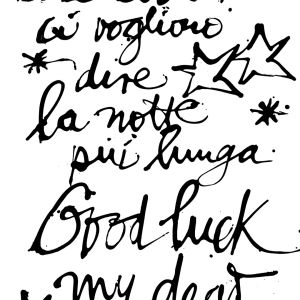 ci vogliono
dire
la notte
più lunga.
Good luck
my dear